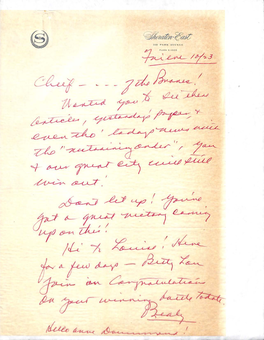 S
Sheraton-East
10/23
Chief - . . . of the Bronx!
Wanted you to see these
articles, yesterday's papers, &
even tho' today's news
the "restraining order", you
& our great city will still
win out!
Don't let up! You've
got a great victory coming
up on this!
Hi to Louise! Here
for a few days - Betty Lou
joins in Congratulations
on your winning battle to date.
Hello Anne